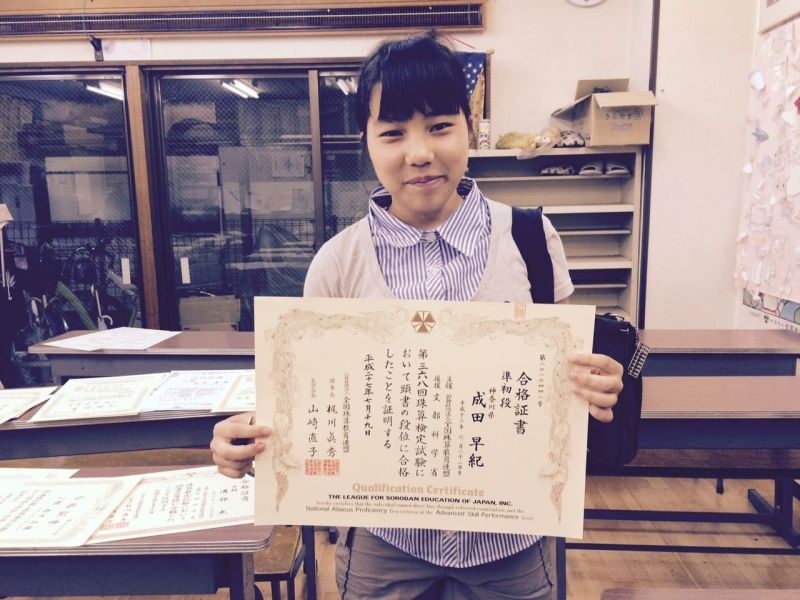 合格証書
準初段
神奈川県
成田 早紀
主催 公益社団法人全国珠算教育連盟
後援 文部科学省
第三六八回珠算検定試験に
おいて頭書の段位に合格
したことを証明する
平成二十七年七月十九日
公益社団法人 全国珠算教育連盟
理事長 梶川眞秀
山崎直子
Qualification Certificate
THE LEAGUE FOR SOROBAN EDUCATION OF JAPAN, INC.
hereby certifies that the individual named above has, through refereed examination, met the
National Abacus Proficiency Test criteria at the Advanced Skill Performance level.
合格証書